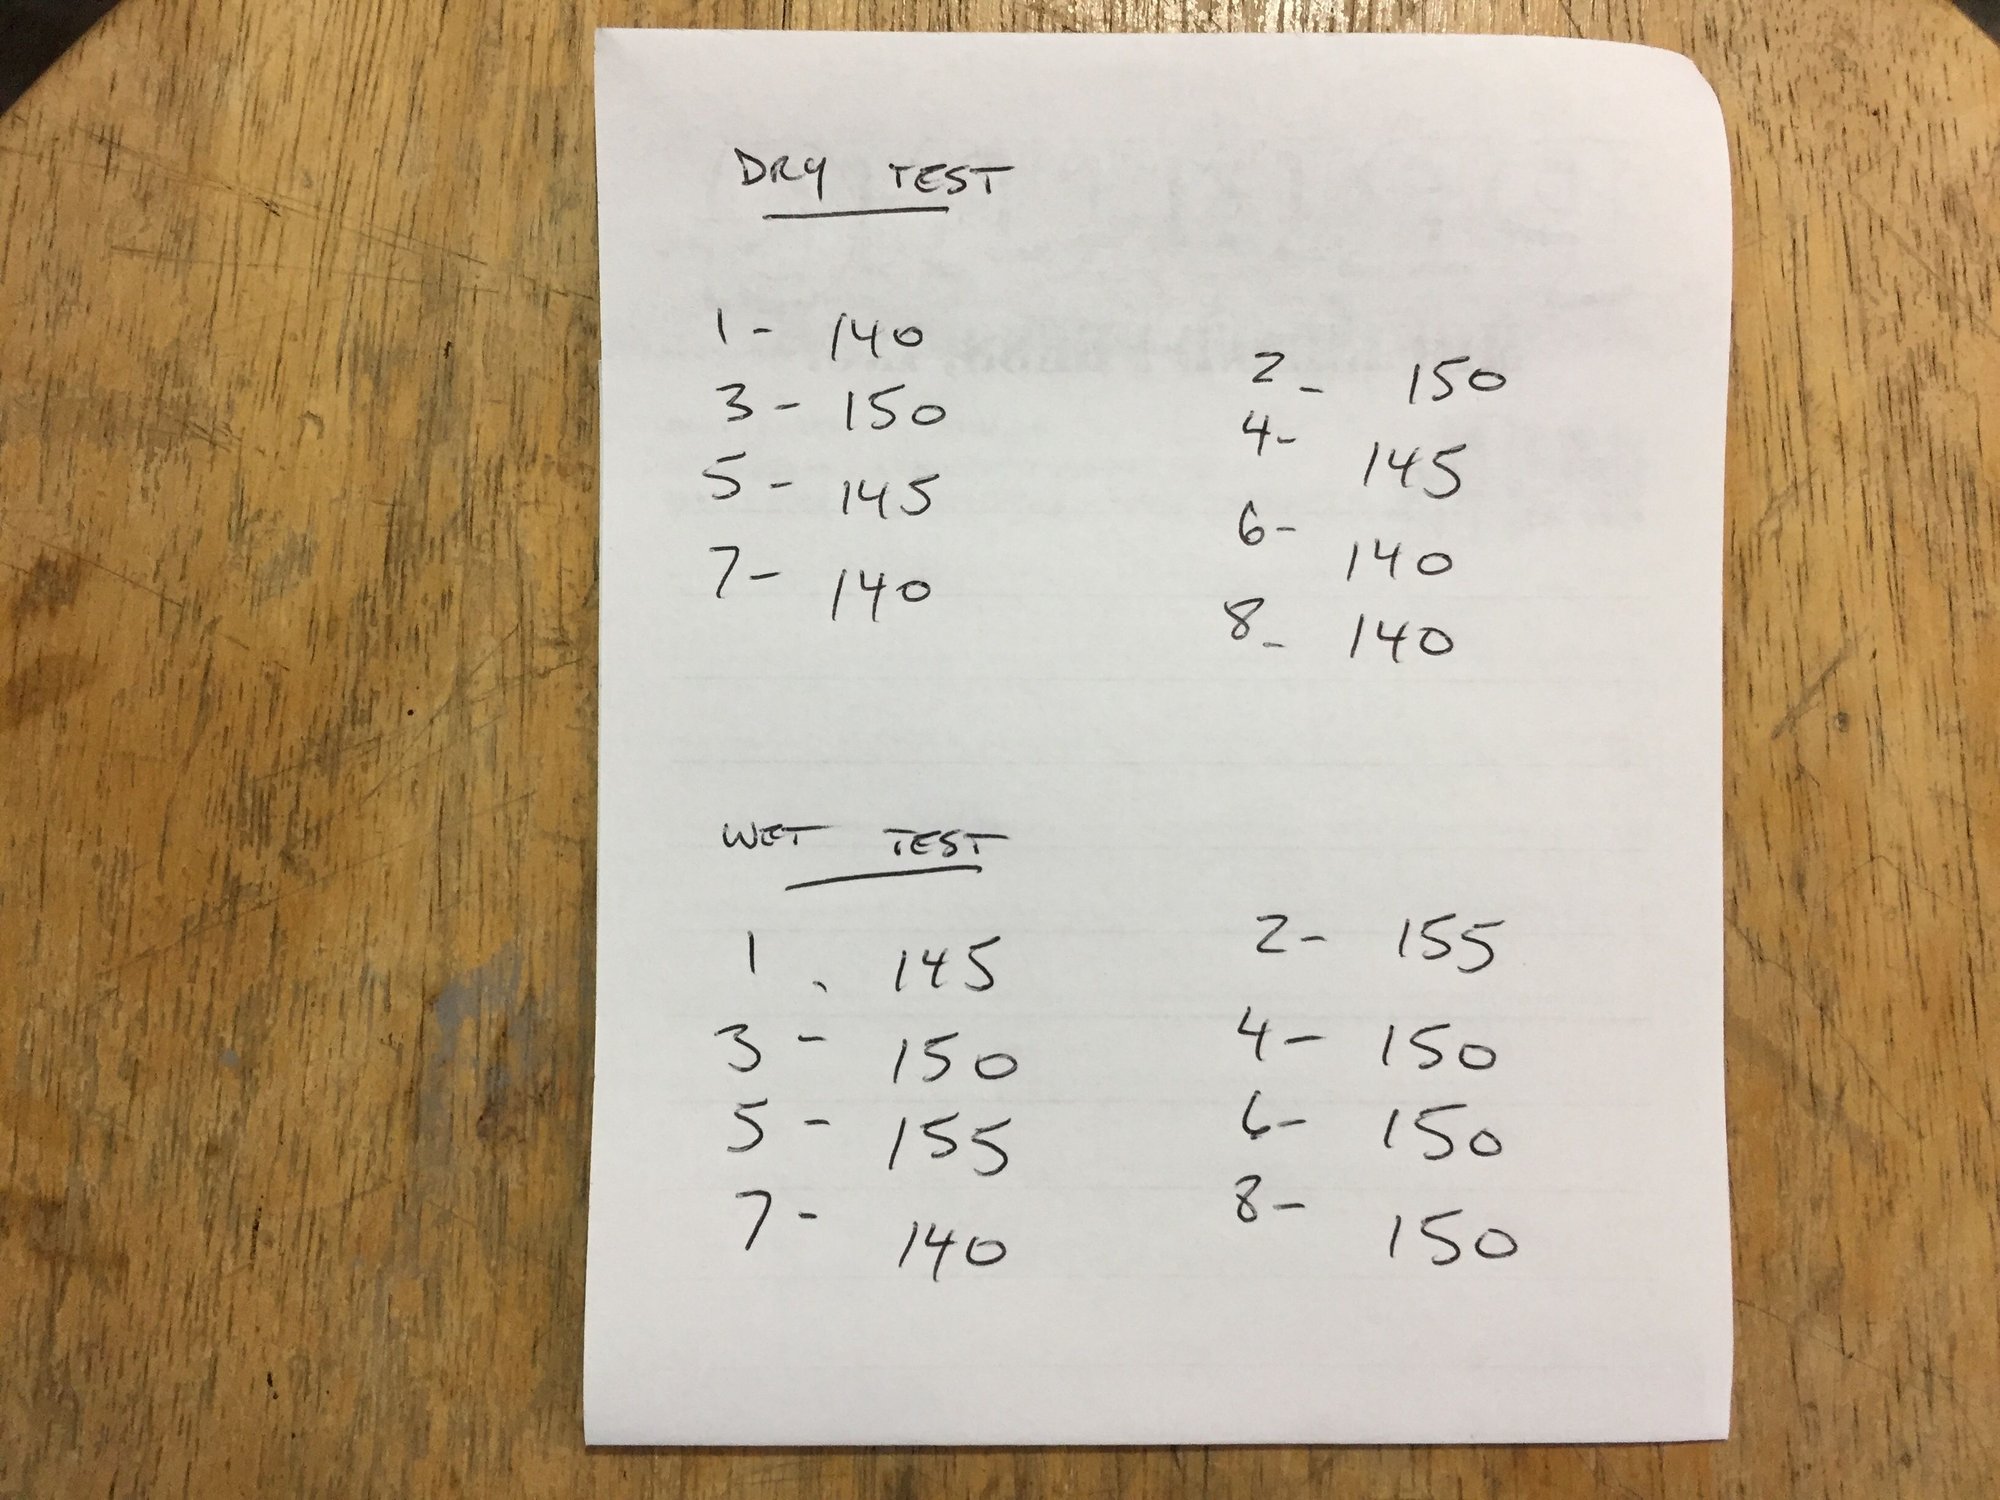 DRY TEST
1- 140
3- 150
5- 145
7- 140
2- 150
4- 145
6- 140
8- 140
WET TEST
1 - 145
3- 150
5- 155
7- 140
2- 155
4- 150
6- 150
8- 150